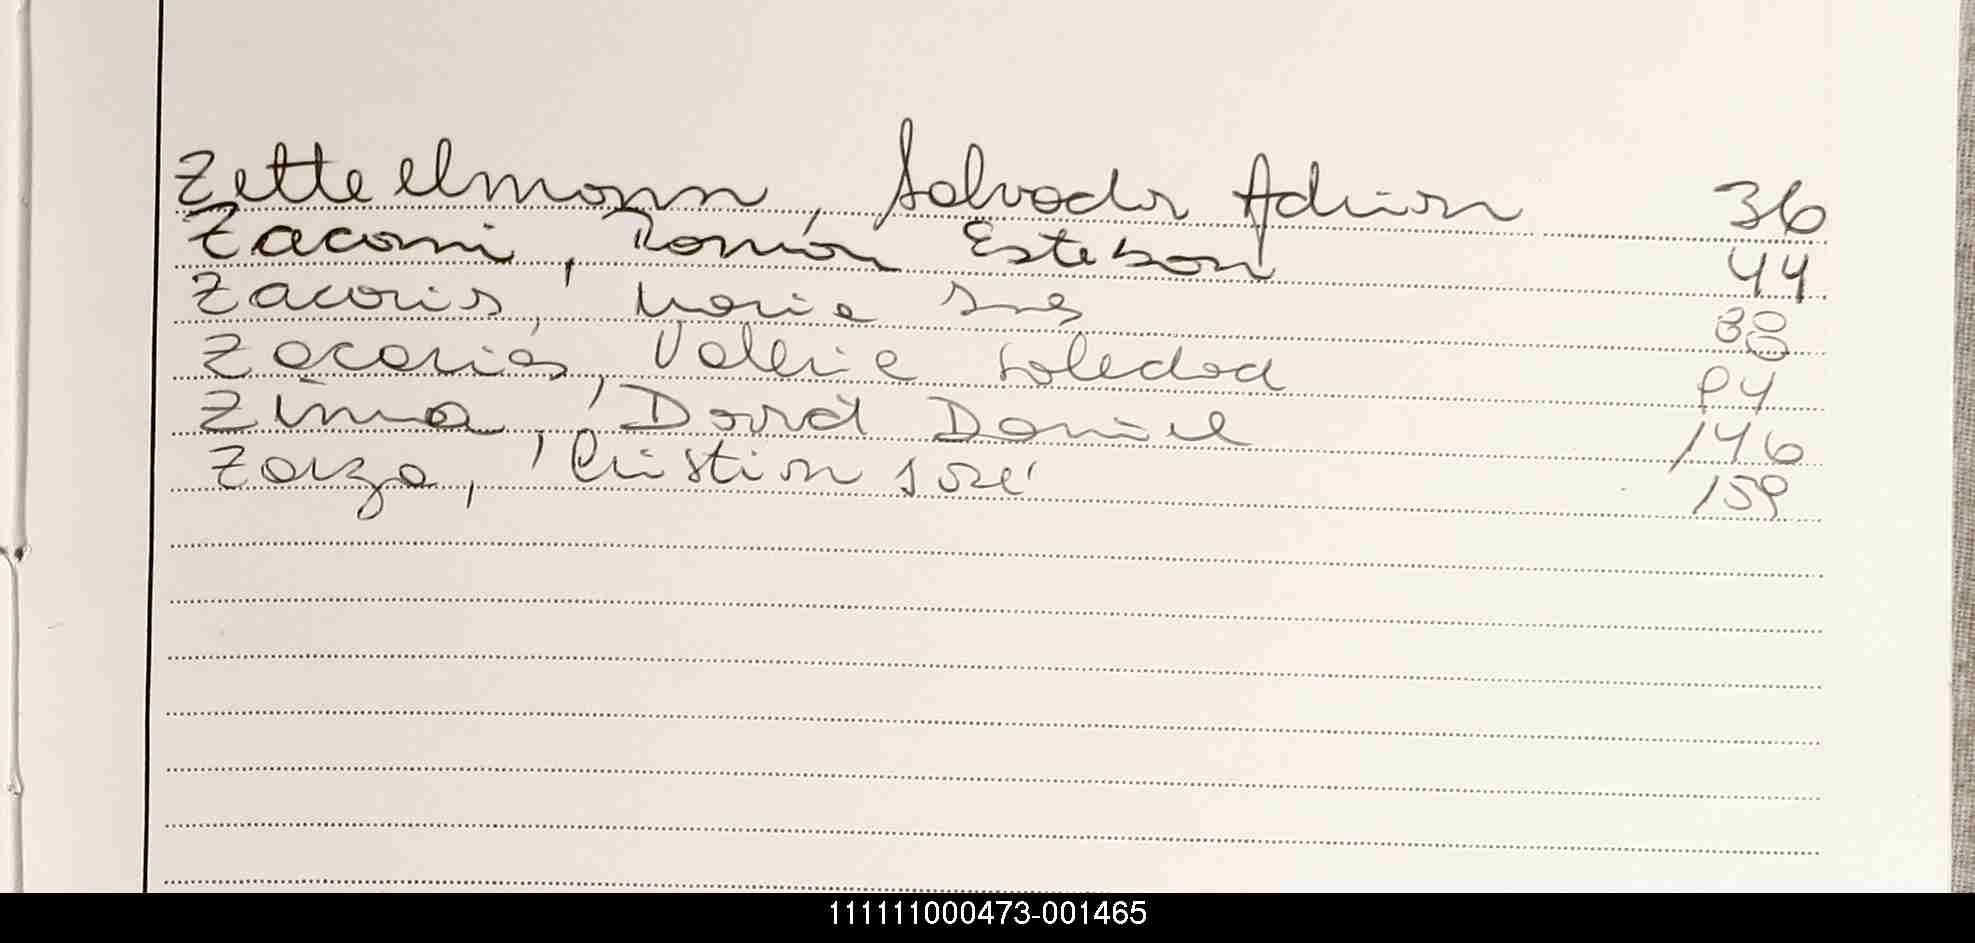 Zetteelmann, Salvador Adrian 36
Zaconi, Román Esteban 44
Zacaris, Maria Ines 88
Zacarias, Valeria Soledad 94
Zima, David Daniel 146
Zarza, Cristian José 159
111111000473-001465